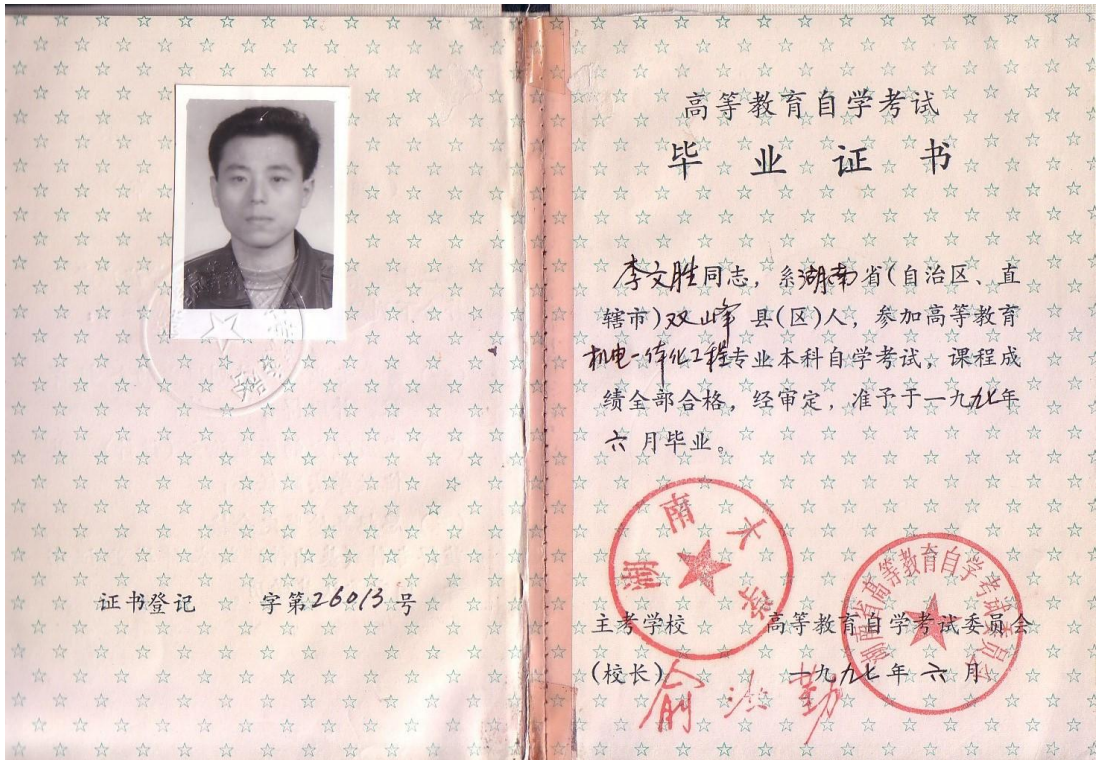 证书登记 字第26013号
高等教育自学考试
毕业证书
李文胜同志，系湖南省(自治区、直
辖市)双峰县(区)人，参加高等教育
机电一体化工程专业本科自学考试，课程成
绩全部合格，经审定，准予于一九九七年
六月毕业。
湖南大学
湖南省高等教育自学考试委员会
主考学校 高等教育自学考试委员会
(校长) 一九九七年六月
俞汝勤